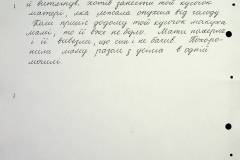 й витягнув, хотів занести той кусочок
матері, яка лежала опухша від голоду
Коли прийшов додому той кусочок макуха
мамі, то її вже не було. Мати померла
і її вивезли, що син і не бачив. Похоро-
нили маму разом з усіма в одній
могилі.